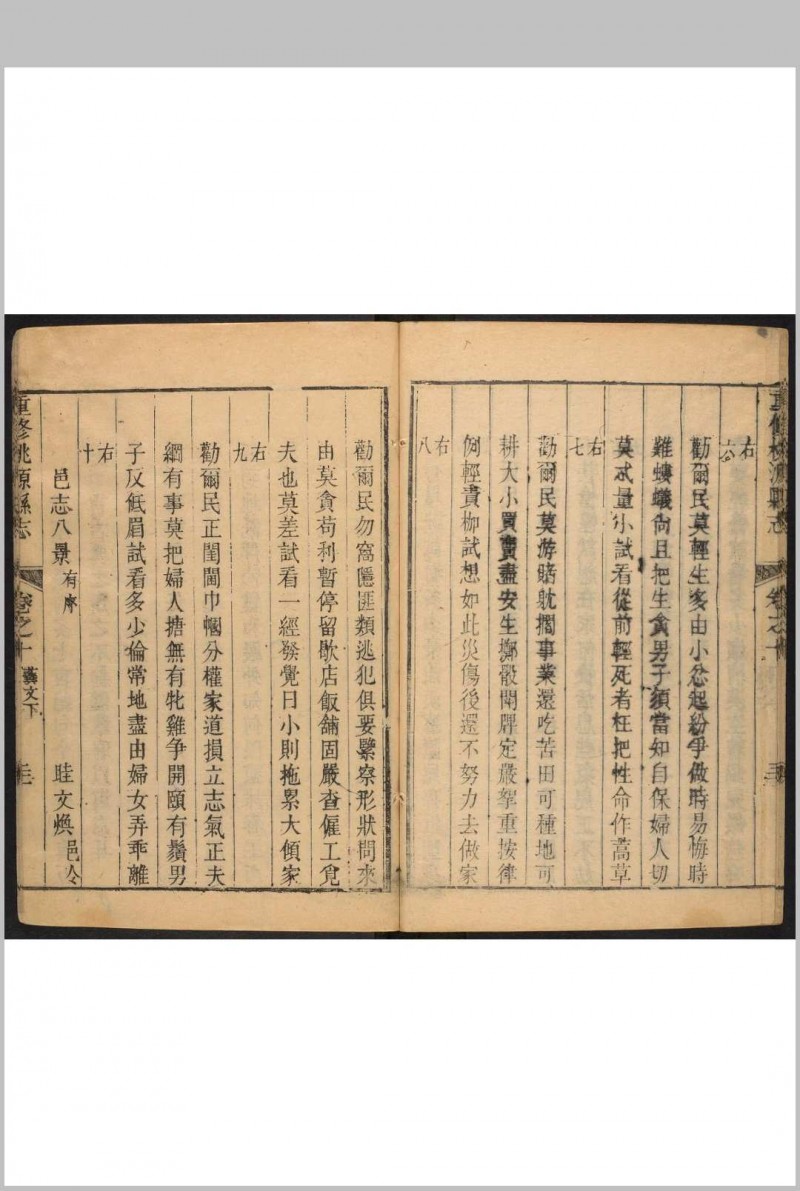 右六
勸爾民莫輕生多由小忿起紛爭做時易悔時
難螻蟻尙且把生貪男子須當知自保婦人切
莫水量小試看從前輕死者枉把性命作蒿草
右七
勸爾民莫游賭躭擱事業還吃苦田可種地可
耕大小買賣盡安生擲骰鬥牌定嚴拏重按律
例輕責枷試想如此災傷後還不努力去做家
右八
勸爾民勿窩隱匪類逃犯俱要鑒察形狀問來
由莫貪苟利暫停留歇店飯舖固嚴查僱工覓
夫也莫差試看一經發覺日小則拖累大傾家
右九
勸爾民正閨閫巾幗分權家道損立志氣正夫
綱有事莫把婦人搪無有牝雞争開頤有鬚男
子反低眉試看多少倫常地盡由婦女弄乖離
右十
邑志八景有序 眭文煥邑令
重修桃源縣志 卷之十 藝文下